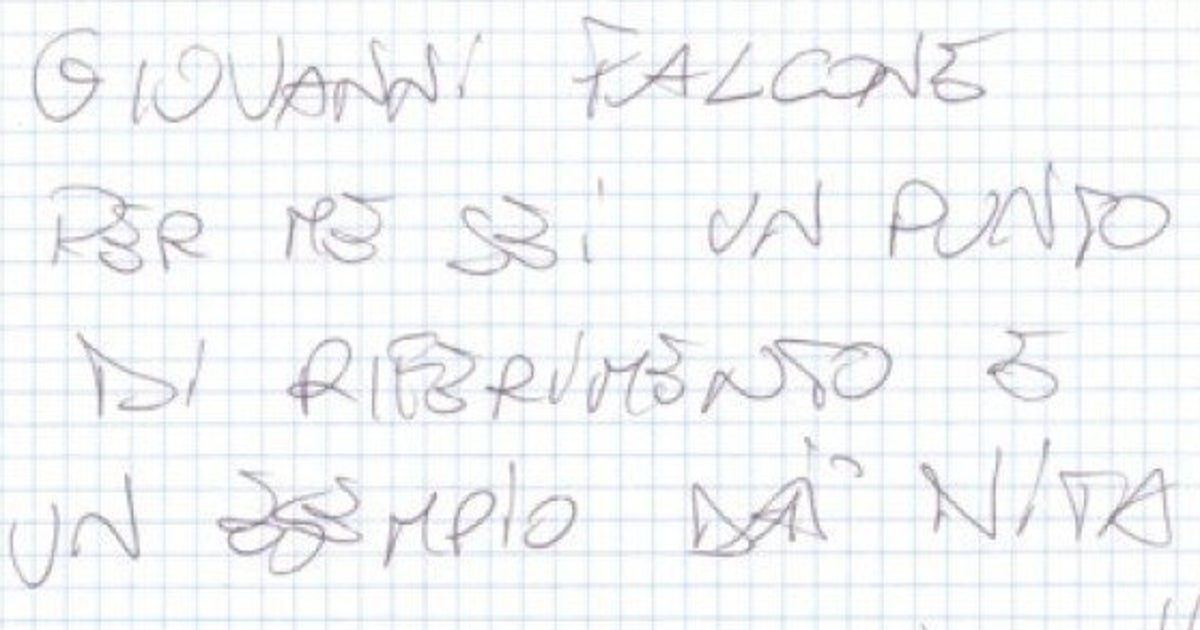 GIOVANNI FALCONE
PER ME SEI UN PUNTO
DI RIFERIMENTO E
UN ESEMPIO